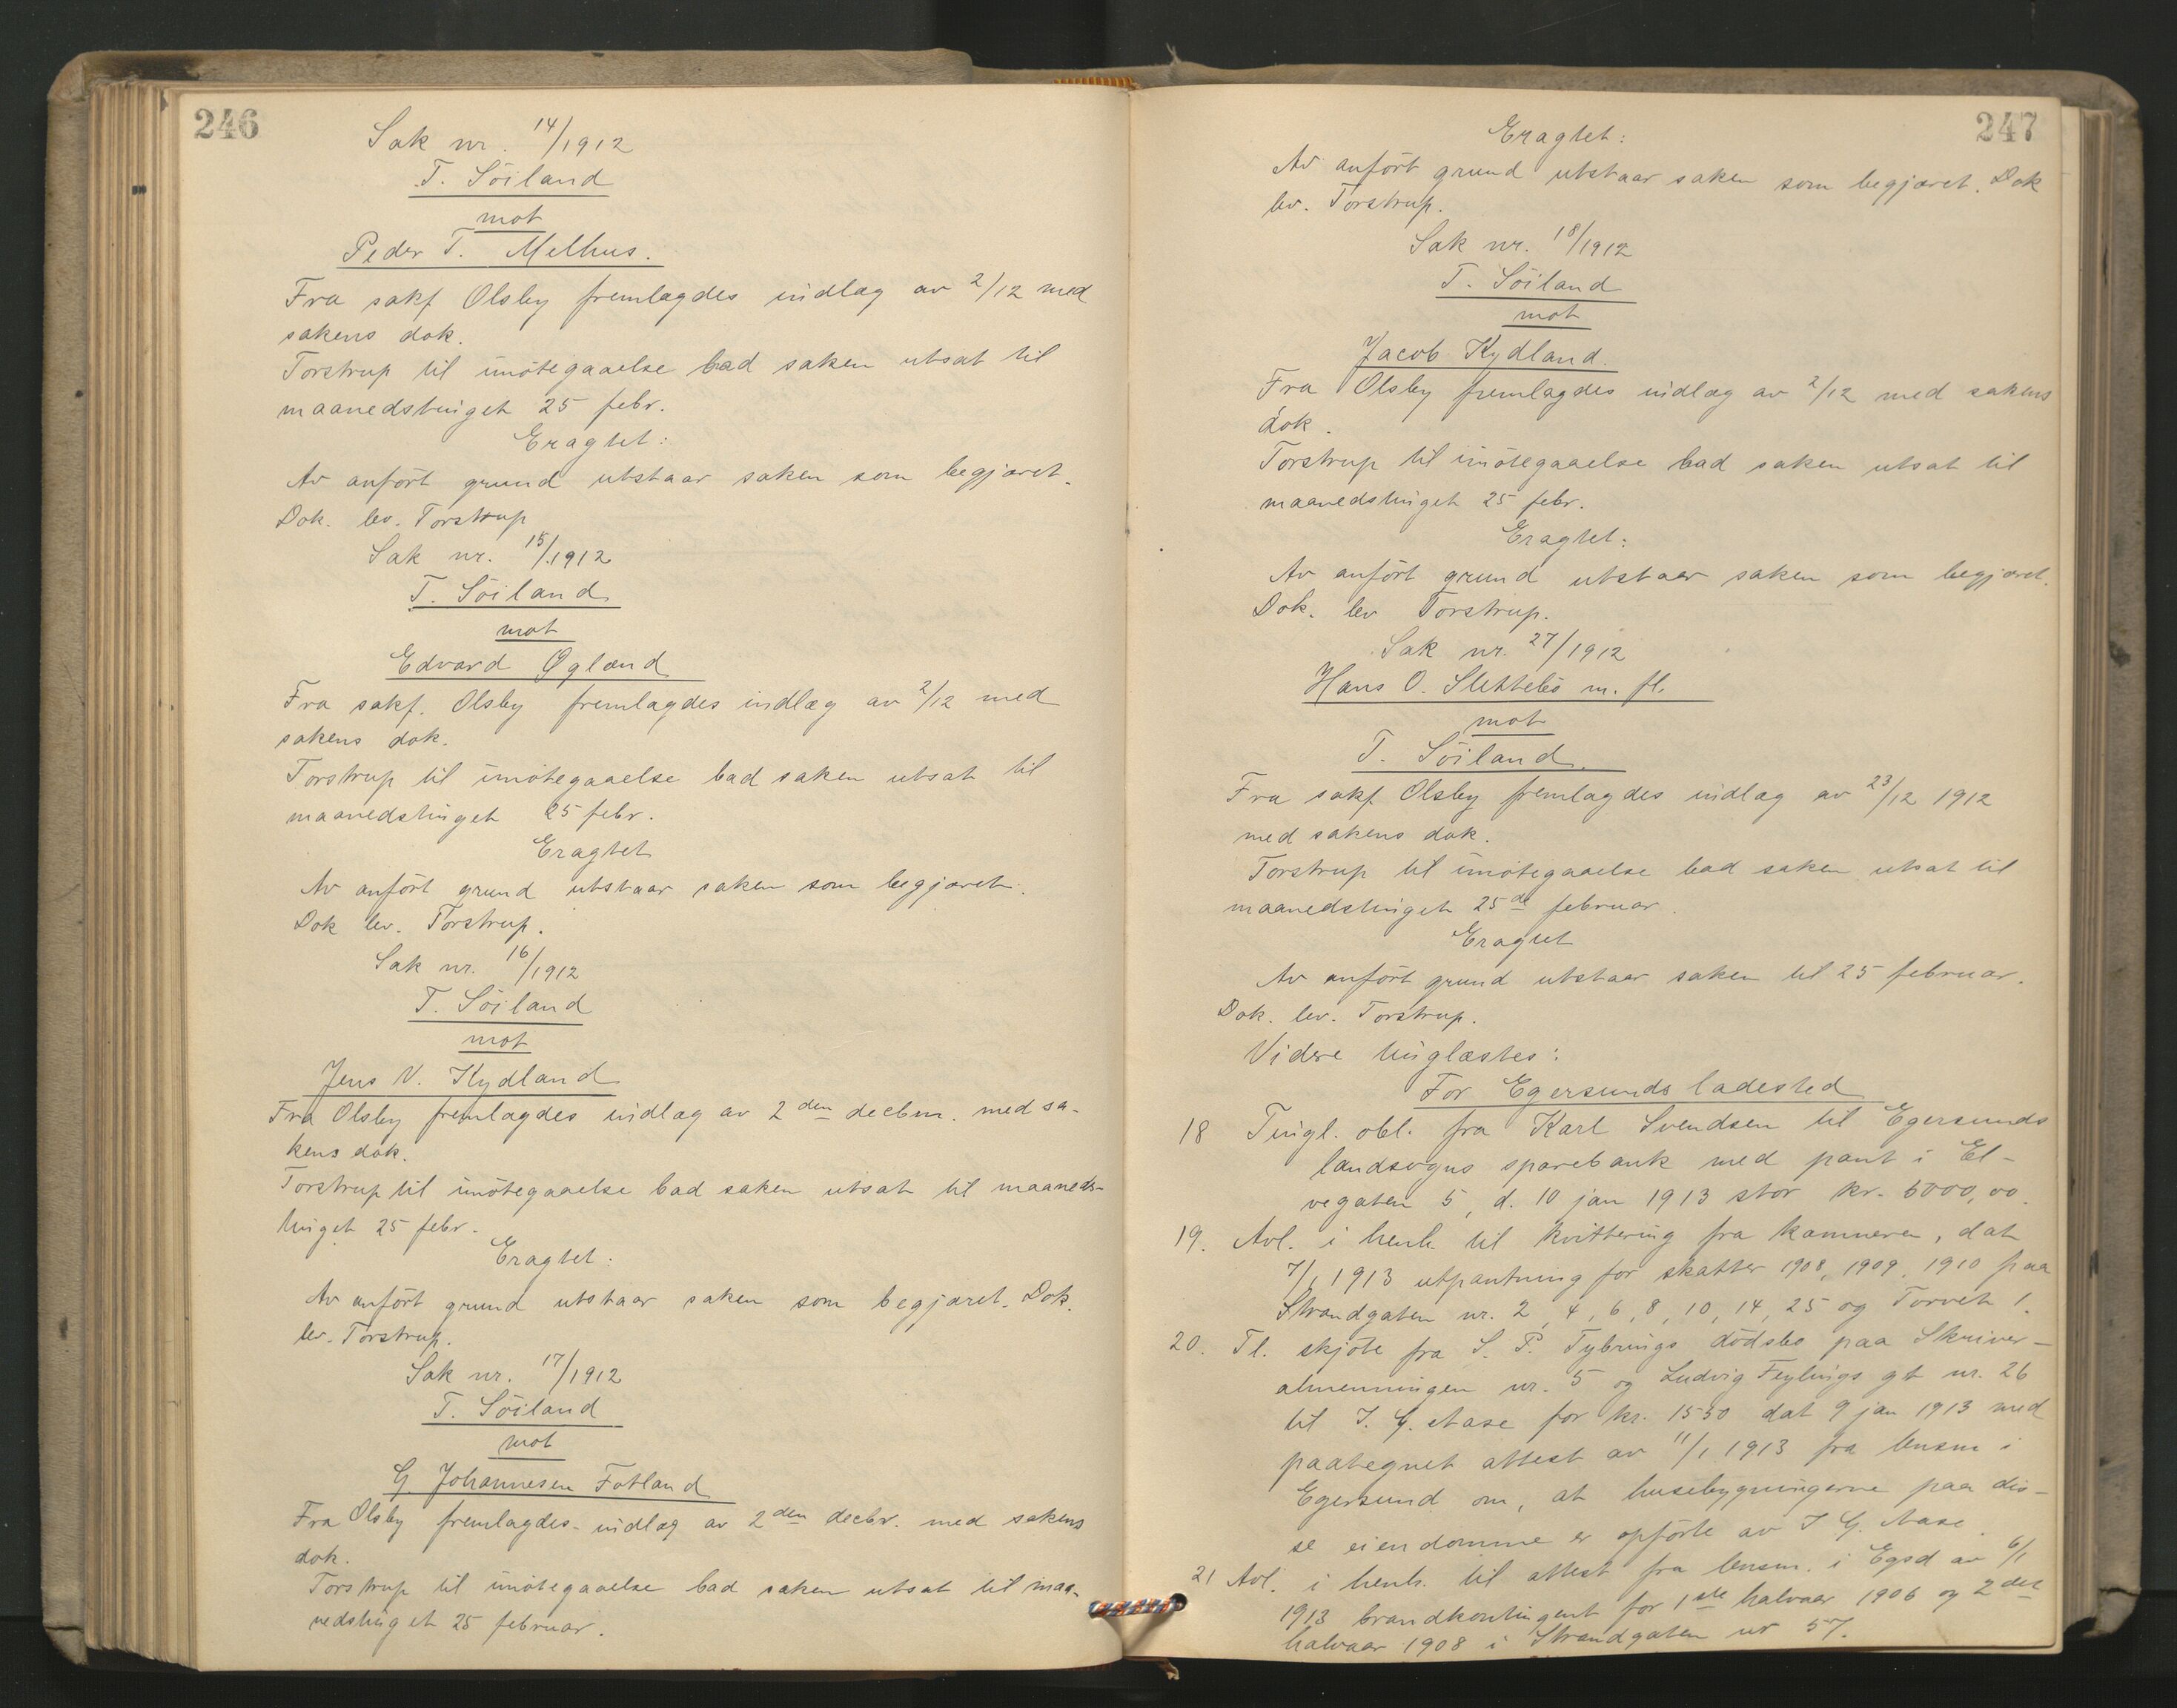 246
Sak nr. 14/1912
T. Söiland
mot
Peder T. Melhus.
Fra sakf Olsby fremlagdes indlæg av 2/12 med
sakens dok.
Torstrup til imötegaaelse bad saken utsat til
maanedstinget 25 febr.
Eragtet:
Av anfört grund utstaar saken som begjæret.
Dok. lev. Torstrup
Sak nr. 15/1912
T. Söiland
mot
Edvard Øgland
Fra sakf. Olsby fremlagdes indlæg av 2/12 med
sakens dok.
Torstrup til imötegaaelse bad saken utsat til
maanedstinget 25 febr.
Eragtet
Av anfört grund utstaar saken som begjæret.
Dok lev. Torstrup.
Sak nr. 16/1912
T. Söiland
mot
Jens V. Kydland
Fra Olsby fremlagdes indlæg av 2den decbm. med sa-
kens dok.
Torstrup til imötegaaelse bad saken utsat til maaneds-
tinget 25 febr.
Eragtet:
Av anfört grund utstaar saken som begjæret. Dok.
lev. Torstrup.
Sak nr. 17/1912
T. Söiland
mot
G. Johannesen Fotland
Fra Olsby fremlagdes indlæg av 2den decbr. med sakens
dok.
Torstrup til imötegaaelse bad saken utsat til maa-
nedstinget 25 februar.
247
Eragtet:
Av anfört grund utstaar saken som begjæret. Dok
lev. Torstrup.
Sak nr. 18/1912
T. Söiland
mot
Jacob Kydland.
Fra Olsby fremlagdes indlæg av 2/12 med sakens
dok.
Torstrup til imötegaaelse bad saken utsat til
maanedstinget 25 febr.
Eragtet:
Av anfört grund utstaar saken som begjæret.
Dok. lev Torstrup.
Sak nr. 27/1912
Hans O. Slettebö m. fl.
mot
T. Söiland.
Fra sakf Olsby fremlagdes indlæg av 23/12 1912
med sakens dok.
Torstrup til imötegaaelse bad saken utsat til
maanedstinget 25de februar.
Eragtet
Av anfört grund utstaar saken til 25 februar.
Dok. lev. Torstrup.
Videre tinglæstes:
For Egersunds ladested
18 Tingl. obl. fra Karl Svendsen til Egersunds
landsogns sparebank med pant i El-
vegaten 5, d. 10 jan 1913 stor kr. 5000,00.
19. Avl. i henh. til kvittering fra kæmneren, dat
7/1 1913 utpantning for skatter 1908, 1909, 1910 paa
Strandgaten nr. 2, 4, 6, 8, 10, 14, 25 og Torvet 1.
20. Tl. skjöte fra S. P. Tybrings dödsbo paa Skriver-
almenningen nr. 5 og Ludvig Feylings gt nr. 26
til J. G. Aase for kr. 1550 dat 9 jan 1913 med
paategnet attest av 11/1 1913 fra lensm i
Egersund om, at husebygningerne paa dis-
se eiendomme er opförte av J G. Aase.
21 Avl. i henh. til attest fra lensm. i Egsd av 6/1
1913 brandkontingent for 1ste halvaar 1906 og 2det
halvaar 1908 i Strandgaten nr 57.